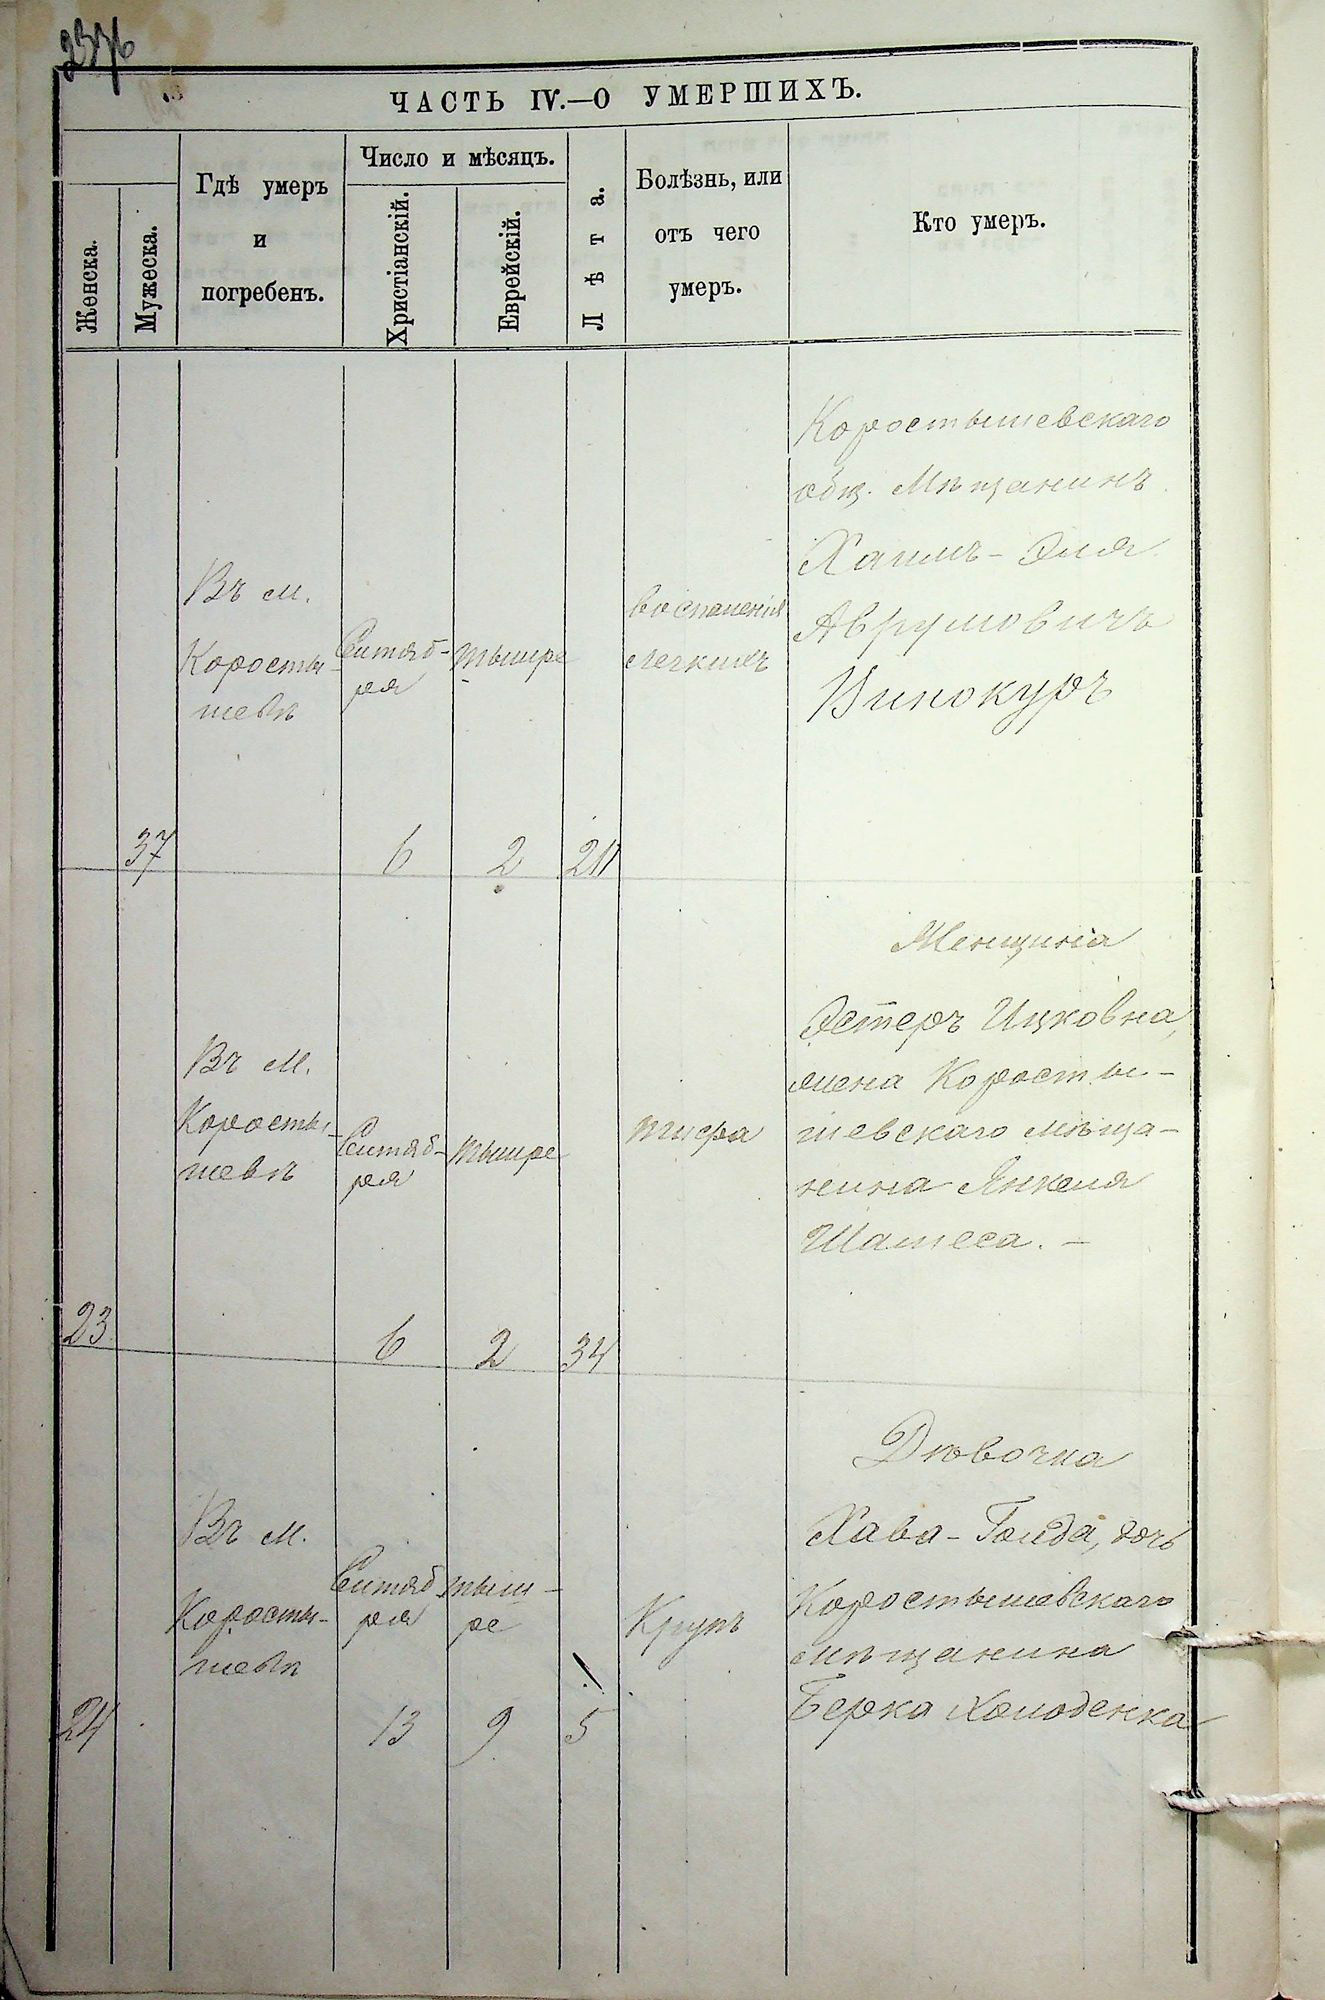 ЧАСТЬ IV.—О УМЕРШИХЪ.
Женска.
Мужеска.
Гдѣ умеръ
и
погребенъ.
Число и мѣсяцъ.
Христіанскій.
Еврейскій.
Лѣта.
Болѣзнь, или
отъ чего
умеръ.
Кто умеръ.
37
Въ м.
Коросты-
шевѣ
Сентяб-
ря
6
тышре
2
воспаленія
легкихъ
Коростышевскаго
общ. Мѣщанинъ
Хаимъ-Эля
Аврумовичъ
Винокуръ
23
Въ м.
Коросты-
шевѣ
Сентяб-
ря
6
тышре
2
34
тифа
Женщина
Эстеръ Ицковна,
жена Коросты-
шевскаго мѣща-
нина Янкеля
24
Въ м.
Коросты-
шевѣ
Сентяб
ря
13
тыш-
ре
9
5
Крупъ
Дѣвочка
Хава-Голда, дочь
Коростышевскаго
мѣщанина
Берка Холоденка